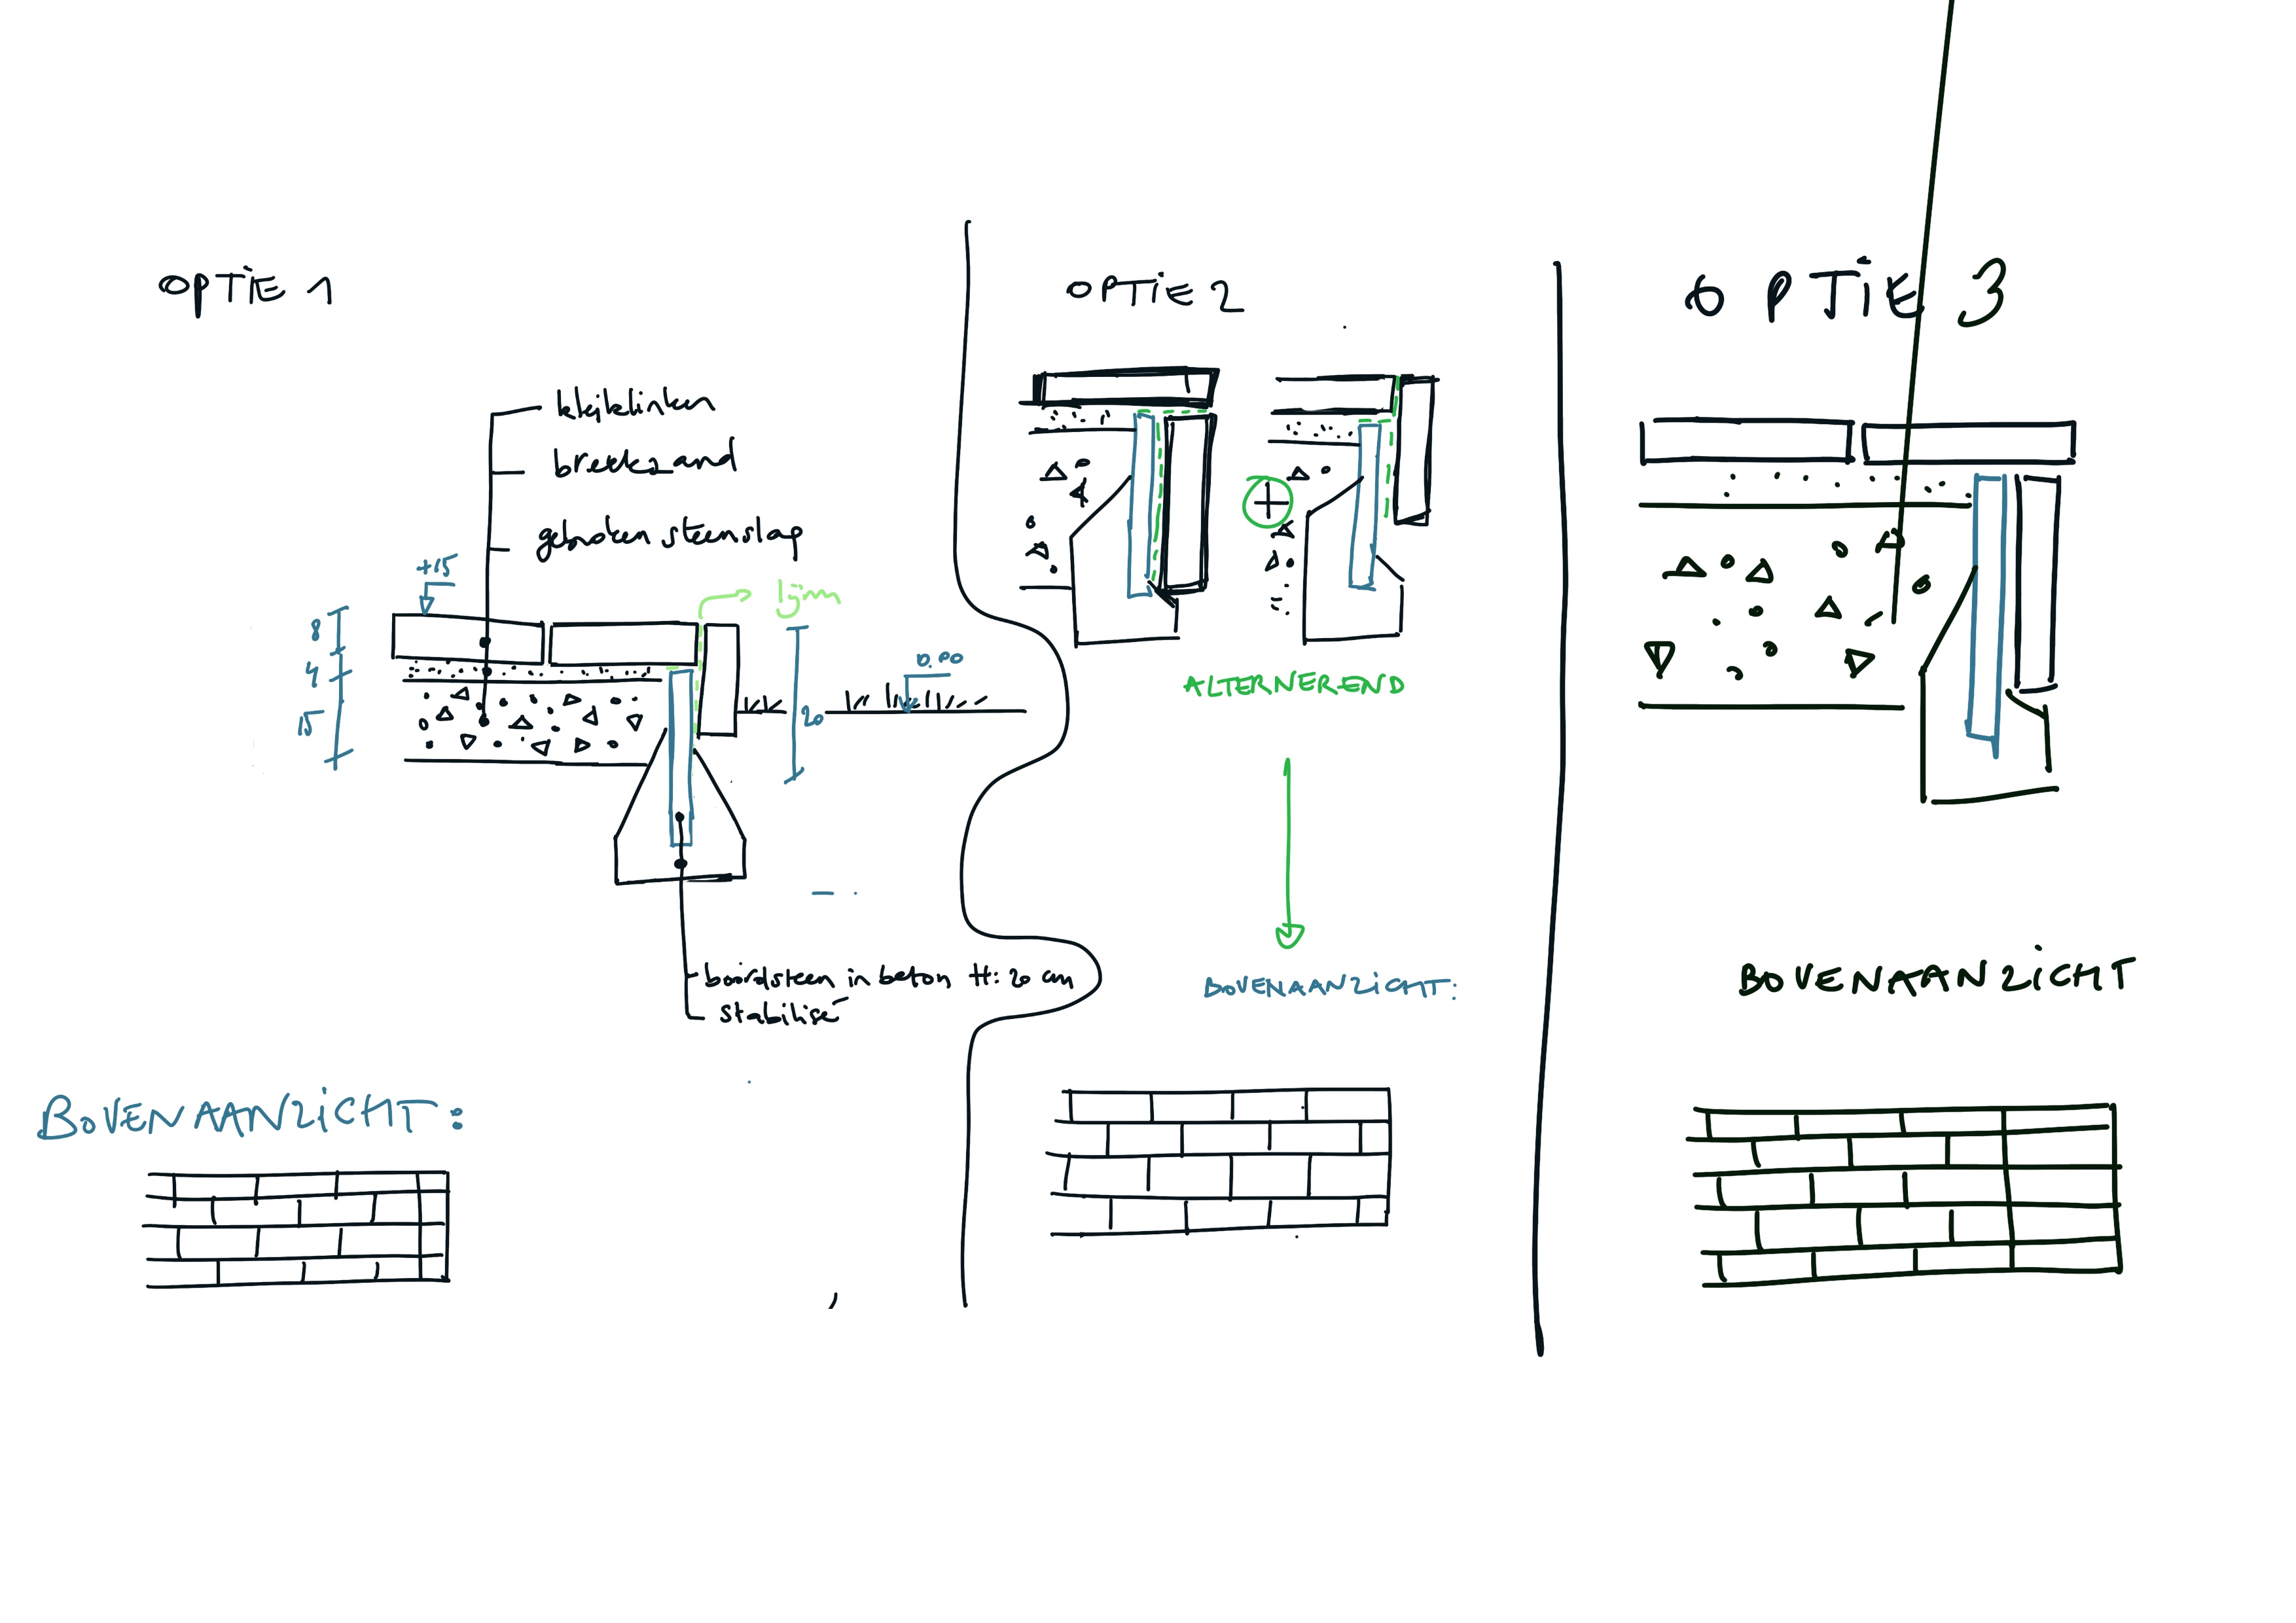 OPTIE 1
kleiklinken
breekzand
gebroken steenslag
+15
8
4
15
lijm
0.00
20
boordsteen in beton H: 20 cm
stabilisé
BOVENAANZICHT:
OPTIE 2
+
ALTERNEREND
BOVENAANZICHT:
OPTIE 3
BOVENAANZICHT